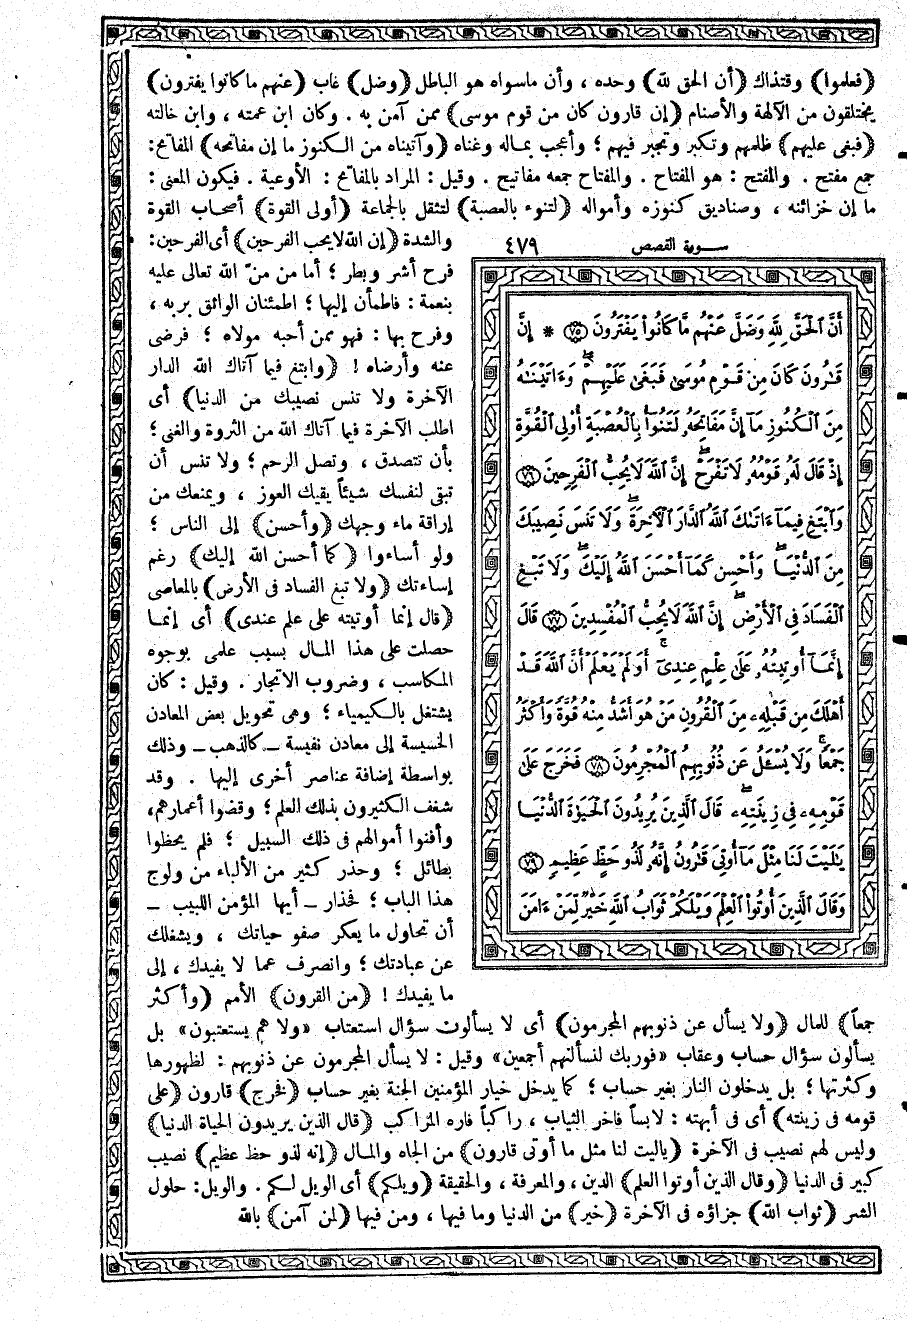 (فعلموا) وقتذاك (أن الحق لله) وحده ، وأن ماسواه هو الباطل (وضل) غاب (عنهم ما كانوا يفترون)
يختلقون من الآلهة والأصنام (إن قارون كان من قوم موسى) ممن آمن به . وكان ابن عمته ، وابن خالته
(فبغى عليهم) ظلمهم وتكبر وتجبر فيهم ؛ وأعجب بماله وغناه (وآتيناه من الكنوز ما إن مفاتحه) المفاتح:
جمع مفتح . والمفتح : هو المفتاح . والمفتاح جمعه مفاتيح . وقيل : المراد بالمفاتح : الأوعية . فيكون المعنى :
ما إن خزائنه ، وصناديق كنوزه وأمواله (لتنوء بالعصبة) لتثقل بالجماعة (أولى القوة) أصحاب القوة
والشدة (إن الله لا يحب الفرحين) أى الفرحين:
فرح أشر وبطر ؛ أما من منّ الله تعالى عليه
بنعمة : فاطمأن إليها ؛ اطمئنان الواثق بربه ،
وفرح بها : فهو ممن أحبه مولاه ؛ فرضى
عنه وأرضاه ! (وابتغ فيما آتاك الله الدار
الآخرة ولا تنس نصيبك من الدنيا) أى
اطلب الآخرة فيما آتاك الله من الثروة والغنى ؛
بأن تتصدق ، وتصل الرحم ؛ ولا تنس أن
تبقى لنفسك شيئاً يقيك العوز ، ويمنعك من
إراقة ماء وجهك (وأحسن) إلى الناس ؛
ولو أساءوا (كما أحسن الله إليك) رغم
إساءتك (ولا تبغ الفساد فى الأرض) بالمعاصى
(قال إنما أوتيته على علم عندى) أى إنما
حصلت على هذا المال بسبب علمى بوجوه
المكاسب ، وضروب الاتجار . وقيل : كان
يشتغل بالكيمياء ؛ وهى تحويل بعض المعادن
الخسيسة إلى معادن نفيسة ــ كالذهب ــ وذلك
بواسطة إضافة عناصر أخرى إليها . وقد
شغف الكثيرون بذلك العلم ؛ وقضوا أعمارهم،
وأفنوا أموالهم فى ذلك السبيل ؛ فلم يحظوا
بطائل ؛ وحذر كثير من الألباء من ولوج
هذا الباب ؛ فحذار ــ أيها المؤمن اللبيب ــ
أن تحاول ما يعكر صفو حياتك ، ويشغلك
عن عبادتك ؛ وانصرف عما لا يفيدك ، إلى
ما يفيدك ! (من القرون) الأمم (وأكثر
ســورة القصص ٤٧٩
أَنَّ ٱلْحَقَّ لِلَّهِ وَضَلَّ عَنْهُم مَّا كَانُوا۟ يَفْتَرُونَ ﴿٧٥﴾ * إِنَّ
قَـٰرُونَ كَانَ مِن قَوْمِ مُوسَىٰ فَبَغَىٰ عَلَيْهِمْ ۖ وَءَاتَيْنَـٰهُ
مِنَ ٱلْكُنُوزِ مَآ إِنَّ مَفَاتِحَهُۥ لَتَنُوٓأُ بِٱلْعُصْبَةِ أُو۟لِى ٱلْقُوَّةِ
إِذْ قَالَ لَهُۥ قَوْمُهُۥ لَا تَفْرَحْ ۖ إِنَّ ٱللَّهَ لَا يُحِبُّ ٱلْفَرِحِينَ ﴿٧٦﴾
وَٱبْتَغِ فِيمَآ ءَاتَىٰكَ ٱللَّهُ ٱلدَّارَ ٱلْـَٔاخِرَةَ ۖ وَلَا تَنسَ نَصِيبَكَ
مِنَ ٱلدُّنْيَا ۖ وَأَحْسِن كَمَآ أَحْسَنَ ٱللَّهُ إِلَيْكَ ۖ وَلَا تَبْغِ
ٱلْفَسَادَ فِى ٱلْأَرْضِ ۖ إِنَّ ٱللَّهَ لَا يُحِبُّ ٱلْمُفْسِدِينَ ﴿٧٧﴾ قَالَ
إِنَّمَآ أُوتِيتُهُۥ عَلَىٰ عِلْمٍ عِندِىٓ ۚ أَوَلَمْ يَعْلَمْ أَنَّ ٱللَّهَ قَدْ
أَهْلَكَ مِن قَبْلِهِۦ مِنَ ٱلْقُرُونِ مَنْ هُوَ أَشَدُّ مِنْهُ قُوَّةً وَأَكْثَرُ
جَمْعًا ۚ وَلَا يُسْـَٔلُ عَن ذُنُوبِهِمُ ٱلْمُجْرِمُونَ ﴿٧٨﴾ فَخَرَجَ عَلَىٰ
قَوْمِهِۦ فِى زِينَتِهِۦ ۖ قَالَ ٱلَّذِينَ يُرِيدُونَ ٱلْحَيَوٰةَ ٱلدُّنْيَا
يَـٰلَيْتَ لَنَا مِثْلَ مَآ أُوتِىَ قَـٰرُونُ إِنَّهُۥ لَذُو حَظٍّ عَظِيمٍ ﴿٧٩﴾
وَقَالَ ٱلَّذِينَ أُوتُوا۟ ٱلْعِلْمَ وَيْلَكُمْ ثَوَابُ ٱللَّهِ خَيْرٌ لِّمَنْ ءَامَنَ
جمعاً) للمال (ولا يسأل عن ذنوبهم المجرمون) أى لا يسألون سؤال استعتاب «ولا هم يستعتبون» بل
يسألون سؤال حساب وعقاب «فوربك لنسألنهم أجمعين» وقيل : لا يسأل المجرمون عن ذنوبهم : لظهورها
وكثرتها ؛ بل يدخلون النار بغير حساب ؛ كما يدخل خيار المؤمنين الجنة بغير حساب (فخرج) قارون (على
قومه فى زينته) أى فى أبهته : لابساً فاخر الثياب ، راكباً فاره المراكب (قال الذين يريدون الحياة الدنيا)
وليس لهم نصيب فى الآخرة (ياليت لنا مثل ما أوتى قارون) من الجاه والمال (إنه لذو حظ عظيم) نصيب
كبير فى الدنيا (وقال الذين أوتوا العلم) الدين ، والمعرفة ، والحقيقة (ويلكم) أى الويل لكم . والويل: حلول
الشر (ثواب الله) جزاؤه فى الآخرة (خير) من الدنيا وما فيها ، ومن فيها (لمن آمن) بالله